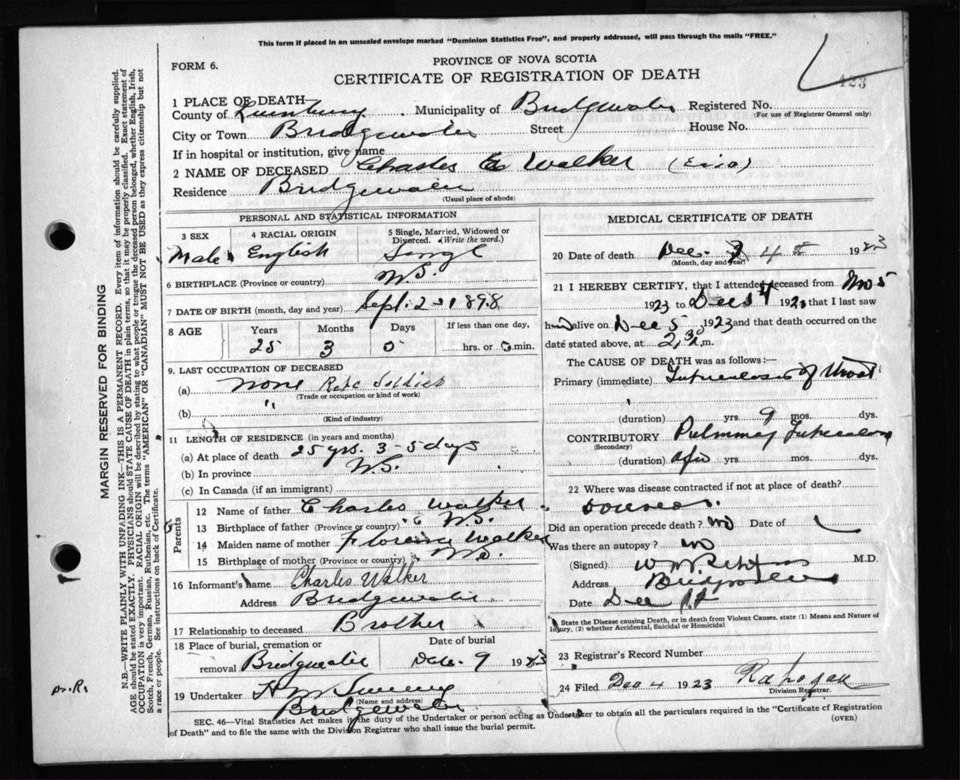 This form if placed in an unsealed envelope marked "Dominion Statistics Free", and properly addressed, will pass through the mails "FREE."
PROVINCE OF NOVA SCOTIA
FORM 6.
CERTIFICATE OF REGISTRATION OF DEATH
423
1 PLACE OF DEATH
County of Lunenburg Municipality of Bridgewater Registered No.
(For use of Registrar General only)
City or Town Bridgewater Street House No.
If in hospital or institution, give name
2 NAME OF DECEASED Charles E Walker
Residence Bridgewater
(Usual place of abode)
PERSONAL AND STATISTICAL INFORMATION
3 SEX 4 RACIAL ORIGIN 5 Single, Married, Widowed or Divorced. (Write the word.)
Male English Single
6 BIRTHPLACE (Province or country) N.S.
7 DATE OF BIRTH (month, day and year) Sept. 2 1898
8 AGE Years Months Days If less than one day,
25 3 hrs. or min.
9. LAST OCCUPATION OF DECEASED
(a) none Retd Soldier
(Trade or occupation or kind of work)
(b) "
(Kind of industry)
11 LENGTH OF RESIDENCE (in years and months)
(a) At place of death 25 yrs. 3 - 5 days
(b) In province N.S.
(c) In Canada (if an immigrant)
Parents
12 Name of father Charles Walker
13 Birthplace of father (Province or country) N.S.
14 Maiden name of mother Florence Walker
15 Birthplace of mother (Province or country) N.S.
16 Informant's name Charles Walker
Address Bridgewater
17 Relationship to deceased Brother
18 Place of burial, cremation or removal Bridgewater Date of burial Dec. 9 1923
19 Undertaker
(Name and address)
Bridgewater
MEDICAL CERTIFICATE OF DEATH
20 Date of death Dec. 1923
(Month, day and year)
21 I HEREBY CERTIFY, that I attended deceased from Nov 5
1923 to Dec 1923 that I last saw
him alive on Dec 5 1923 and that death occurred on the
date stated above, at m.
The CAUSE OF DEATH was as follows:—
Primary (immediate) Tuberculosis of throat
(duration) yrs. 9 mos. dys.
CONTRIBUTORY Pulmonary Tuberculosis
(Secondary)
(duration) a few yrs. mos. dys.
22 Where was disease contracted if not at place of death?
Did an operation precede death? no Date of
Was there an autopsy? no
(Signed) M.D.
Address Bridgewater
Date Dec
State the Disease causing Death, or in death from Violent Causes, state (1) Means and Nature of Injury, (2) whether Accidental, Suicidal or Homicidal
23 Registrar's Record Number
24 Filed Dec 4 1923
Division Registrar.
SEC. 46—Vital Statistics Act makes it the duty of the Undertaker or person acting as Undertaker to obtain all the particulars required in the "Certificate of Registration
of Death" and to file the same with the Division Registrar who shall issue the burial permit.
(OVER)
MARGIN RESERVED FOR BINDING
N.B.—WRITE PLAINLY WITH UNFADING INK—THIS IS A PERMANENT RECORD. Every item of information should be carefully supplied.
AGE should be stated EXACTLY. PHYSICIANS should STATE CAUSE OF DEATH in plain terms, so that it may be properly classified. Exact statement of
OCCUPATION is very important. RACIAL ORIGIN will be described by stating to what people or tongue the deceased person belonged, whether English, Irish,
Scotch, French, German, Russian, Ruthenian, etc. The terms "AMERICAN" or "CANADIAN" MUST NOT BE USED as they express citizenship but not
a race or people. See instructions on back of Certificate.